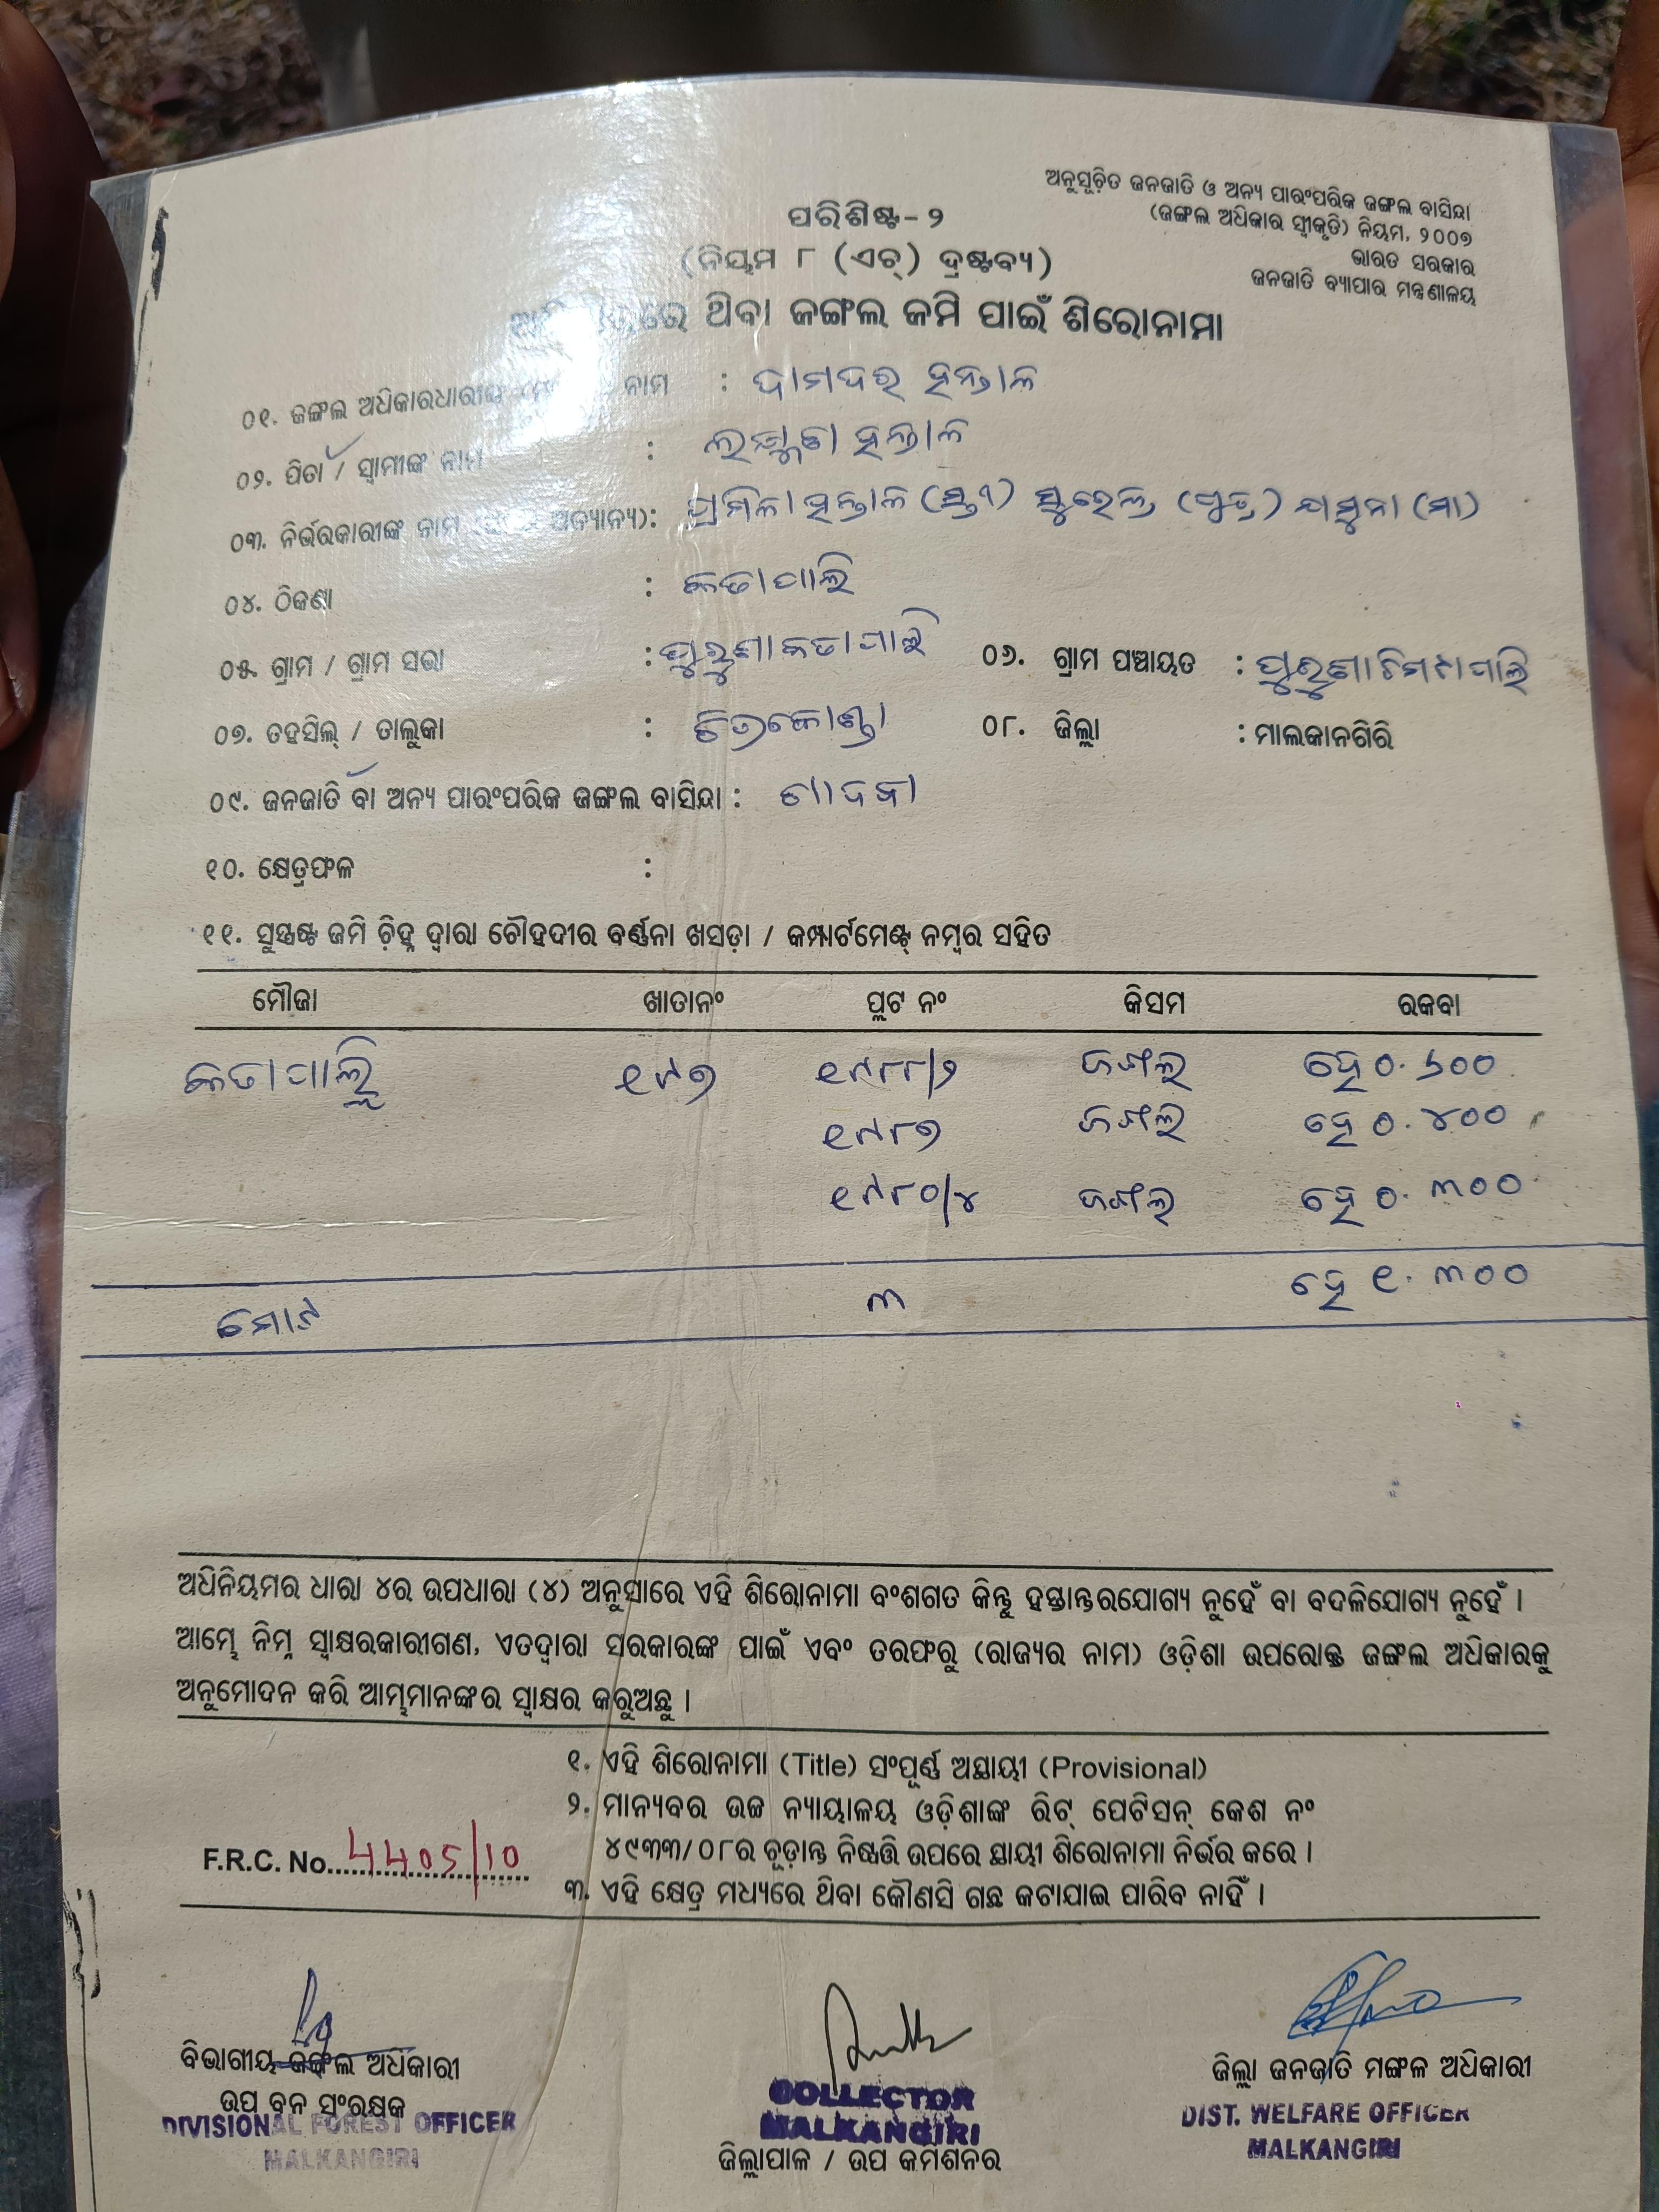 ଅନୁସୂଚିତ ଜନଜାତି ଓ ଅନ୍ୟ ପାରଂପରିକ ଜଙ୍ଗଲ ବାସିନ୍ଦା
(ଜଙ୍ଗଲ ଅଧିକାର ସ୍ୱୀକୃତି) ନିୟମ, ୨୦୦୭
ଭାରତ ସରକାର
ଜନଜାତି ବ୍ୟାପାର ମନ୍ତ୍ରଣାଳୟ
ପରିଶିଷ୍ଟ-୨
(ନିୟମ ୮ (ଏଚ୍) ଦ୍ରଷ୍ଟବ୍ୟ)
ଥିବା ଜଙ୍ଗଲ ଜମି ପାଇଁ ଶିରୋନାମା
୦୧. ଜଙ୍ଗଲ ଅଧିକାରଧାରୀଙ୍କ ନାମ : ଦାମଦର ହନ୍ତାଳ
୦୨. ପିତା / ସ୍ୱାମୀଙ୍କ ନାମ : ହନ୍ତାଳ
୦୩. ନିର୍ଭରକାରୀଙ୍କ ନାମ ଅନ୍ୟାନ୍ୟ): ପ୍ରମିଳା ହନ୍ତାଳ (ସ୍ତ୍ରୀ) (ପୁତ୍ର) ଯମୁନା (ମା)
୦୪. ଠିକଣା : କଡାପାଲି
୦୫. ଗ୍ରାମ / ଗ୍ରାମ ସଭା : ୦୬. ଗ୍ରାମ ପଞ୍ଚାୟତ :
୦୭. ତହସିଲ୍ / ତାଲୁକା : ଚିତ୍ରକୋଣ୍ଡା ୦୮. ଜିଲ୍ଲା : ମାଲକାନଗିରି
୦୯. ଜନଜାତି ବା ଅନ୍ୟ ପାରଂପରିକ ଜଙ୍ଗଲ ବାସିନ୍ଦା : ଗାଦବା
୧୦. କ୍ଷେତ୍ରଫଳ :
୧୧. ସୁସ୍ପଷ୍ଟ ଜମି ଚିହ୍ନ ଦ୍ୱାରା ଚୌହଦୀର ବର୍ଣ୍ଣନା ଖସଡ଼ା / କମ୍ପାର୍ଟମେଣ୍ଟ୍ ନମ୍ବର ସହିତ
ମୌଜା ଖାତାନଂ ପ୍ଲଟ ନଂ କିସମ ରକବା
କଡାପାଲ୍ଲି ୧୯୭ ୧୯୮୮/୨ ଜଙ୍ଗଲ ହେ ୦.୬୦୦
୧୯୮୭ ଜଙ୍ଗଲ ହେ ୦.୪୦୦
୧୯୮୦/୪ ଜଙ୍ଗଲ ହେ ୦.୩୦୦
ମୋଟ ୩ ହେ ୧.୩୦୦
ଅଧିନିୟମର ଧାରା ୪ର ଉପଧାରା (୪) ଅନୁସାରେ ଏହି ଶିରୋନାମା ବଂଶଗତ କିନ୍ତୁ ହସ୍ତାନ୍ତରଯୋଗ୍ୟ ନୁହେଁ ବା ବଦଳିଯୋଗ୍ୟ ନୁହେଁ ।
ଆମ୍ଭେ ନିମ୍ନ ସ୍ୱାକ୍ଷରକାରୀଗଣ, ଏତଦ୍ୱାରା ସରକାରଙ୍କ ପାଇଁ ଏବଂ ତରଫରୁ (ରାଜ୍ୟର ନାମ) ଓଡ଼ିଶା ଉପରୋକ୍ତ ଜଙ୍ଗଲ ଅଧିକାରକୁ
ଅନୁମୋଦନ କରି ଆମ୍ଭମାନଙ୍କର ସ୍ୱାକ୍ଷର କରୁଅଛୁ ।
୧. ଏହି ଶିରୋନାମା (Title) ସଂପୂର୍ଣ୍ଣ ଅସ୍ଥାୟୀ (Provisional)
୨. ମାନ୍ୟବର ଉଚ୍ଚ ନ୍ୟାୟାଳୟ ଓଡ଼ିଶାଙ୍କ ରିଟ୍ ପେଟିସନ୍ କେଶ ନଂ
୪୯୩୩/୦୮ର ଚୂଡ଼ାନ୍ତ ନିଷ୍ପତ୍ତି ଉପରେ ସ୍ଥାୟୀ ଶିରୋନାମା ନିର୍ଭର କରେ ।
F.R.C. No. 4405/10
୩. ଏହି କ୍ଷେତ୍ର ମଧ୍ୟରେ ଥିବା କୌଣସି ଗଛ କଟାଯାଇ ପାରିବ ନାହିଁ ।
ବିଭାଗୀୟ ଜଙ୍ଗଲ ଅଧିକାରୀ
ଉପ ବନ ସଂରକ୍ଷକ
DIVISIONAL FOREST OFFICER
MALKANGIRI
COLLECTOR
MALKANGIRI
ଜିଲ୍ଲାପାଳ / ଉପ କମିଶନର
ଜିଲ୍ଲା ଜନଜାତି ମଙ୍ଗଳ ଅଧିକାରୀ
DIST. WELFARE OFFICER
MALKANGIRI